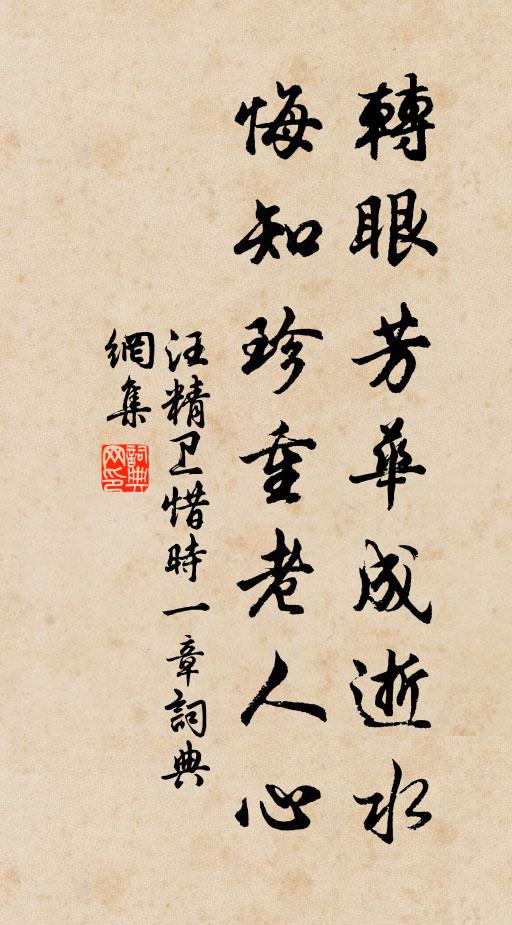 轉眼芳華成逝水
悔知珍重老人心
汪精卫惜時一章詞典
網集
詞典
网印